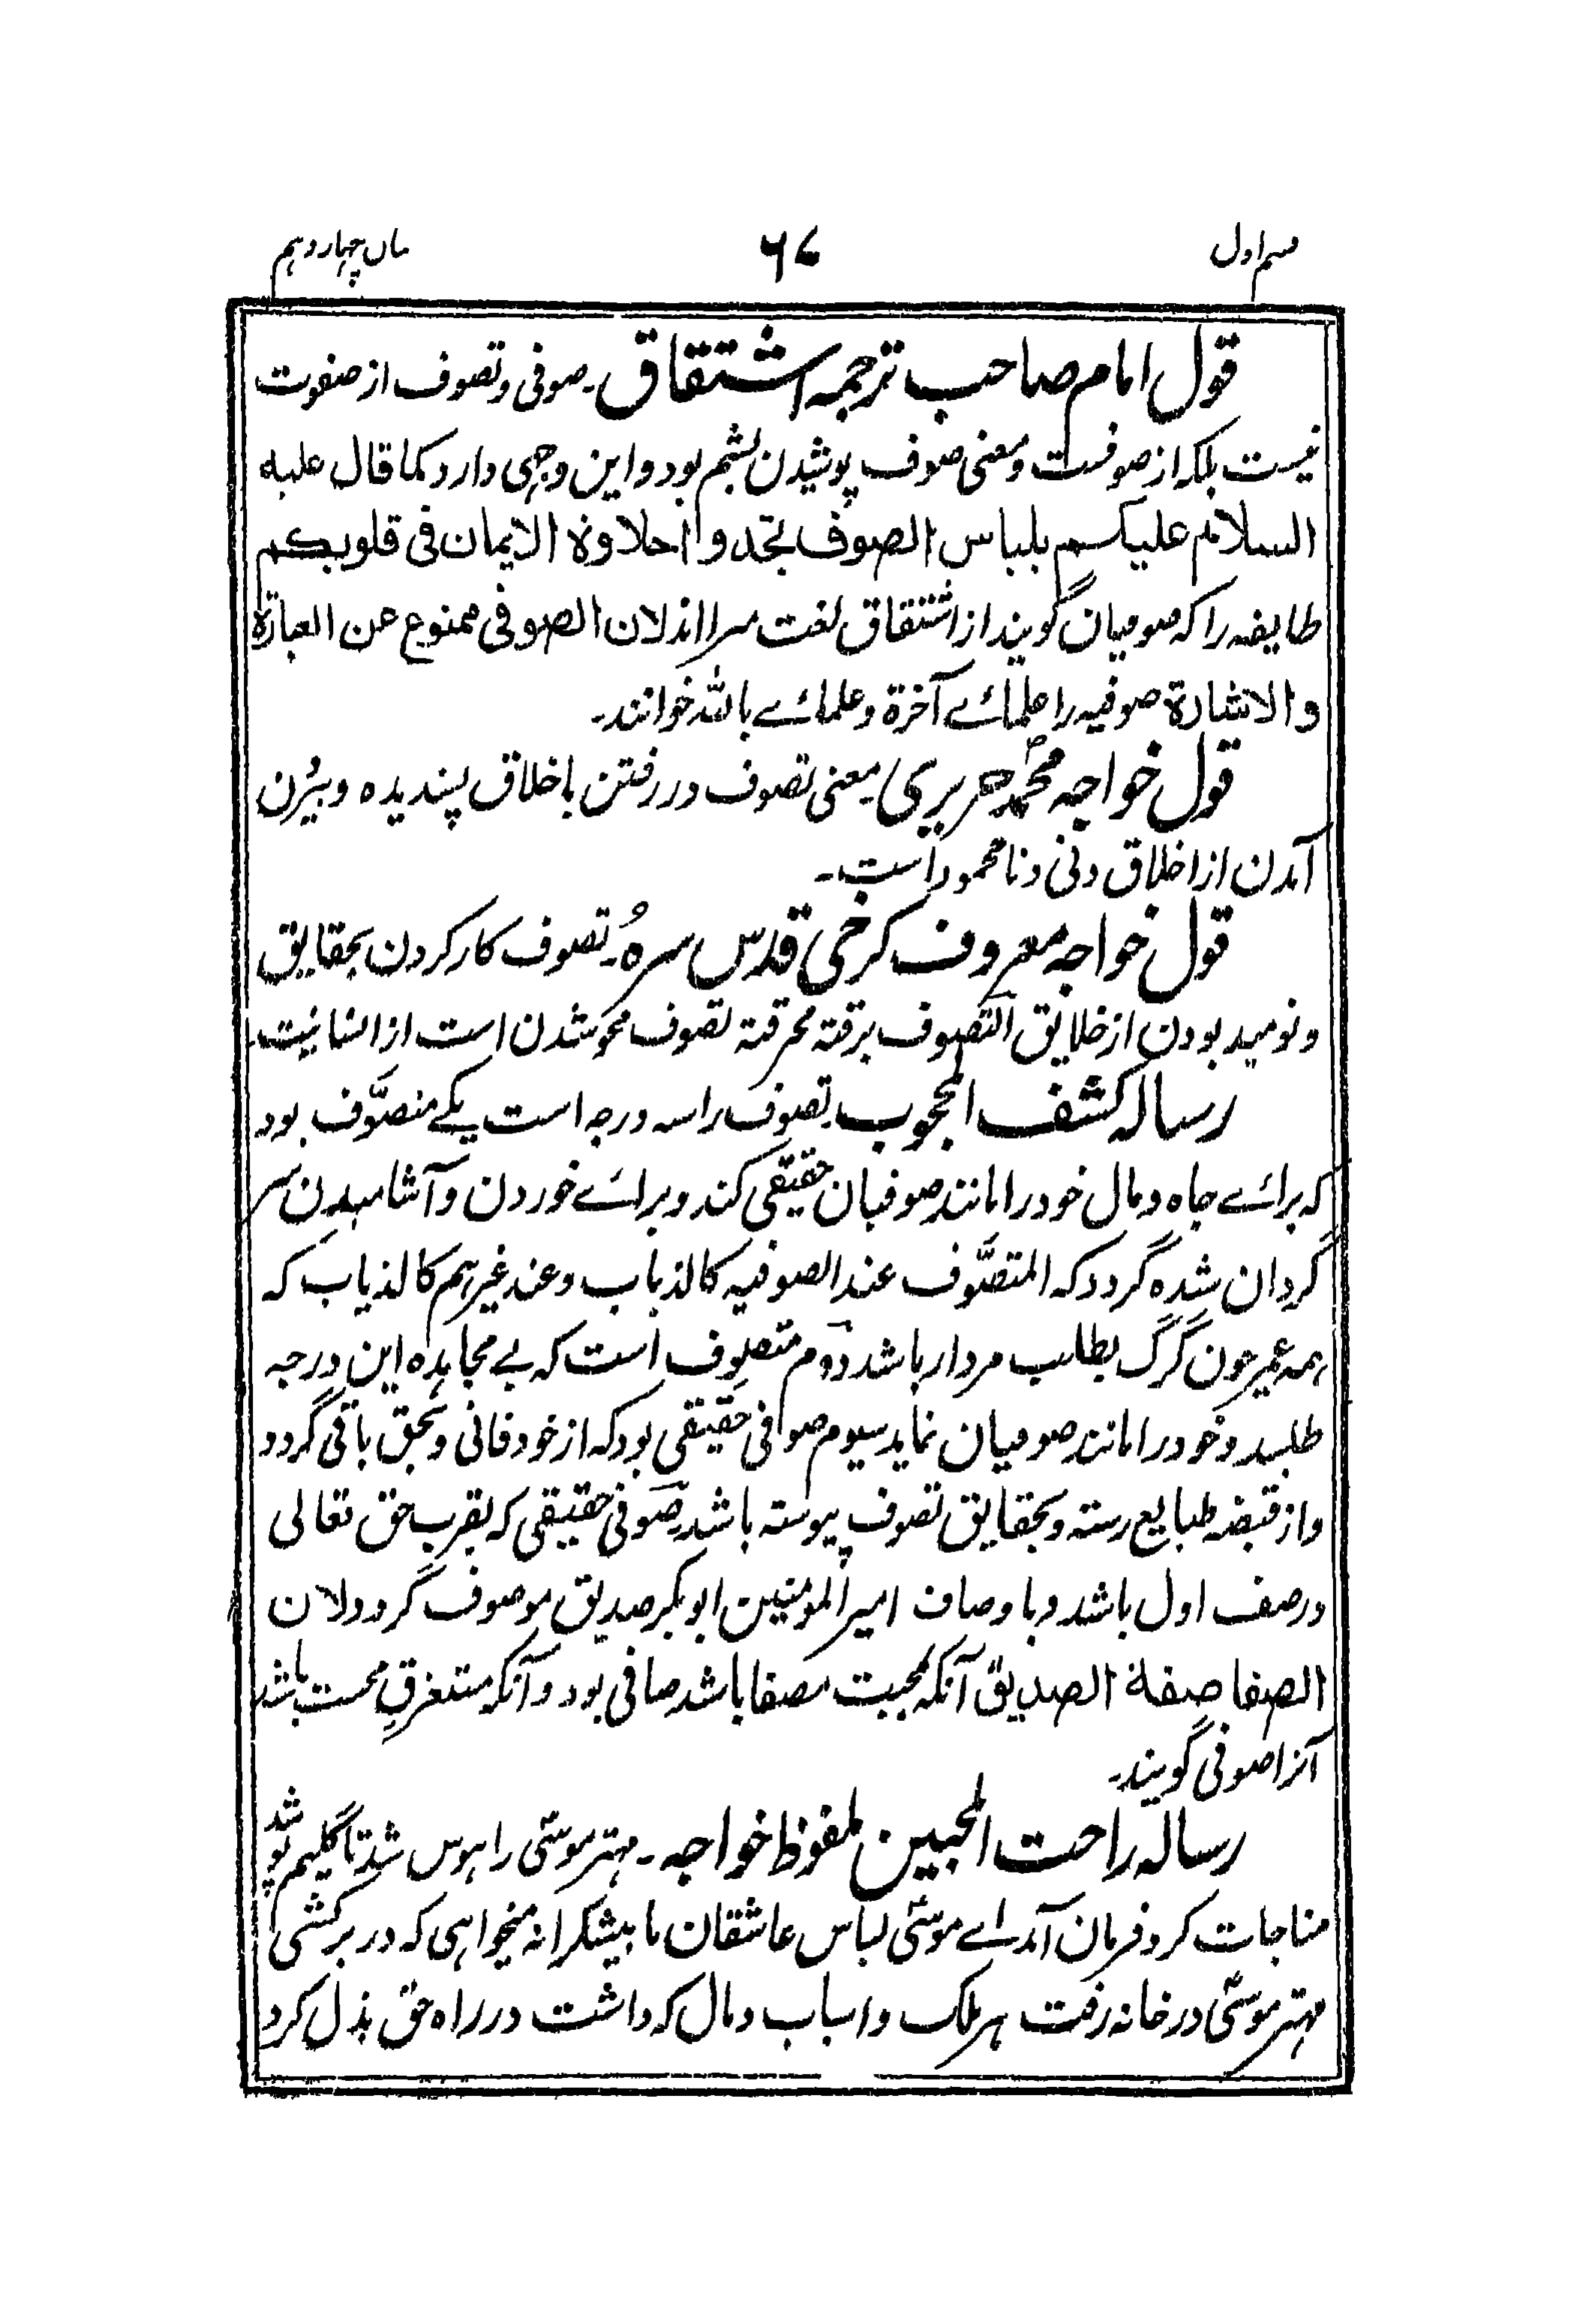 قسم اول ۶۷ بیان چہاردہم
قول امام صاحب ترجمہ اشتقاق۔ صوفی و تصوف از صفوت
نیست بلکہ از صوفست و معنی صوف پوشیدن پشم بود و این وجہی دارد کما قال علیہ
السلام علیکم بلباس الصوف تجدوا حلاوة الایمان فی قلوبکم
طایفہ را کہ صوفیان گویند از اشتقاق لغت مبرا اند لان الصوفی ممنوع عن العبارة
والاشارة صوفیہ را علمائے آخرة و علمائے باللہ خوانند۔
قول خواجہ محمد حریری۔ معنی تصوف در رفتن باخلاق پسندیدہ و بیرُن
آمدن از اخلاق دنی و نا محمود است۔
قول خواجہ معروف کرخی قدس سرہُ۔ تصوف کار کردن بحقایق
و نومید بودن از خلایق التصوف برقتہ محرقتہ تصوف محو شدن است از انسانیت۔
رسالہ کشف المحجوب۔ تصوف را سہ درجہ است یکے متصوّف بود
کہ برائے جاہ و مال خود را مانند صوفیان حقیقی کند و برائے خوردن و آشامیدن سر
گردان شدہ گردد کہ المتصوّف عند الصوفیہ کالذباب و عند غیرہم کالذیاب کہ
ہمہ عمر چون گرگ بطلب مردار باشد دوم متصوف است کہ بے مجاہدہ این درجہ
طلبد و خود را مانند صوفیان نماید سیوم صوافی حقیقی بود کہ از خود فانی و بحق باقی گردد
و از قبضہ طبایع رستہ و بحقایق تصوف پیوستہ باشد صوفی حقیقی کہ بقرب حق تعالی
در صف اول باشد و باوصاف امیر المومنین ابوبکر صدیق موصوف گردد لان
الصفا صفة الصدیق آنکہ بمحبت مصفا باشد صافی بود و آنکہ مستغرقِ محبت باشد
آنرا صوفی گویند۔
رسالہ راحت المحبین ملفوظ خواجہ۔ مہتر موسیٰ را ہوس شد تا گلیم پوشد
مناجات کرد فرمان آمد اے موسیٰ لباس عاشقان ما بیشکرانہ میخواہی کہ در بر کشی
مہتر موسیٰ در خانہ رفت ہر ملک و اسباب و مال کہ داشت در راہ حق بذل کرد